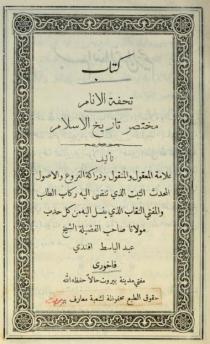 كتاب
تحفة الانام
مختصر تاريخ الاسلام
تأليف
علامة المعقول والمنقول ودراكة الفروع والاصول
المحدث الثبت الذي تنتهى اليه ركاب الطلب
والمفتي النقاب الذي ينسل اليه من كل حدب
مولانا صاحب الفضيلة الشيخ
عبد الباسط افندي
فاخوري
مفتي مدينة بيروت حالاً حفظه الله
حقوق الطبع محفوظة لشعبة معارف